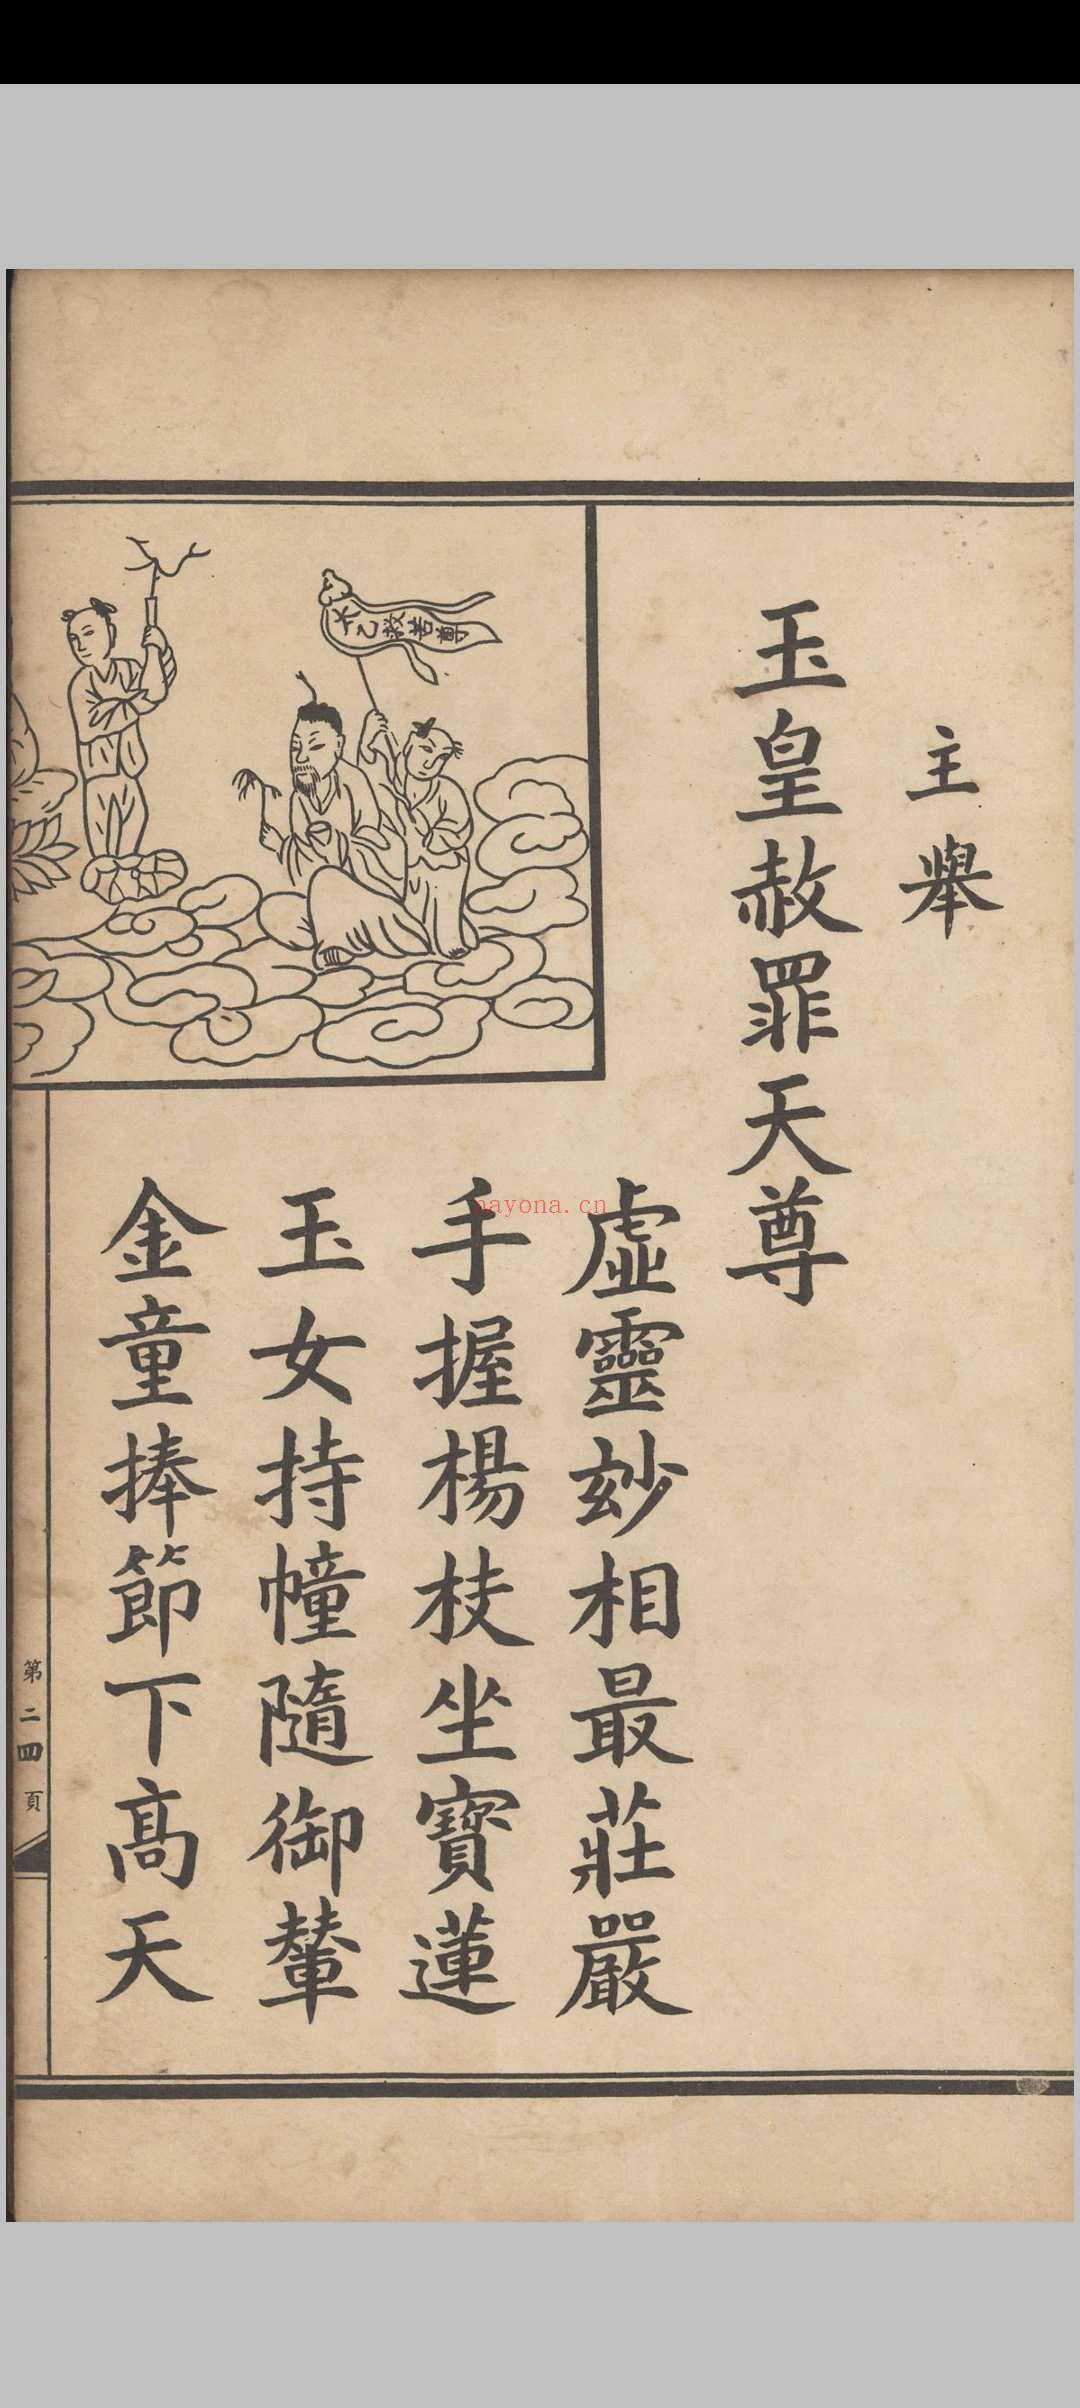 主舉
玉皇赦罪天尊
虛靈玅相最莊嚴
手握楊枝坐寶蓮
玉女持幢隨御輦
金童捧節下高天
太乙救苦尊
第二四頁
nayona.cn